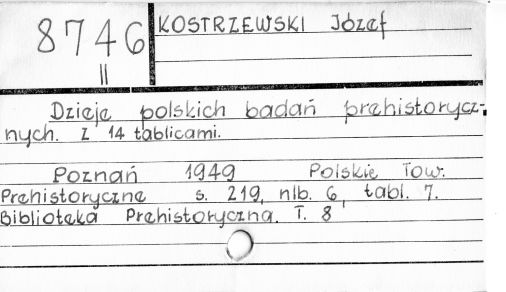 8746
II
KOSTRZEWSKI Józef
Dzieje polskich badań prehistorycz-
nych. Z 14 tablicami.
Poznań 1949 Polskie Tow.
Prehistoryczne s. 219, nlb. 6, tabl. 7.
Biblioteka Prehistoryczna. T. 8